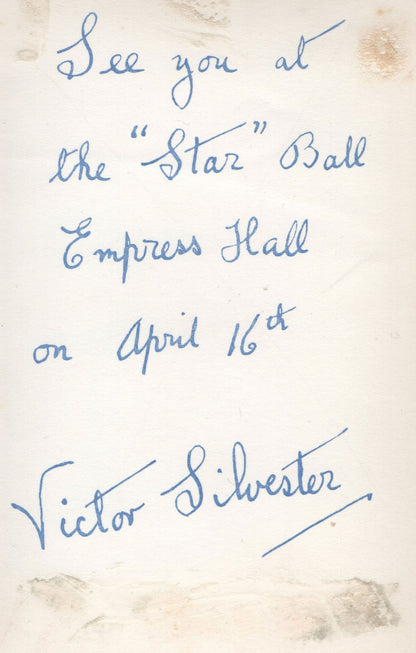 See you at
the "Star" Ball
Empress Hall
on April 16th
Victor Silvester